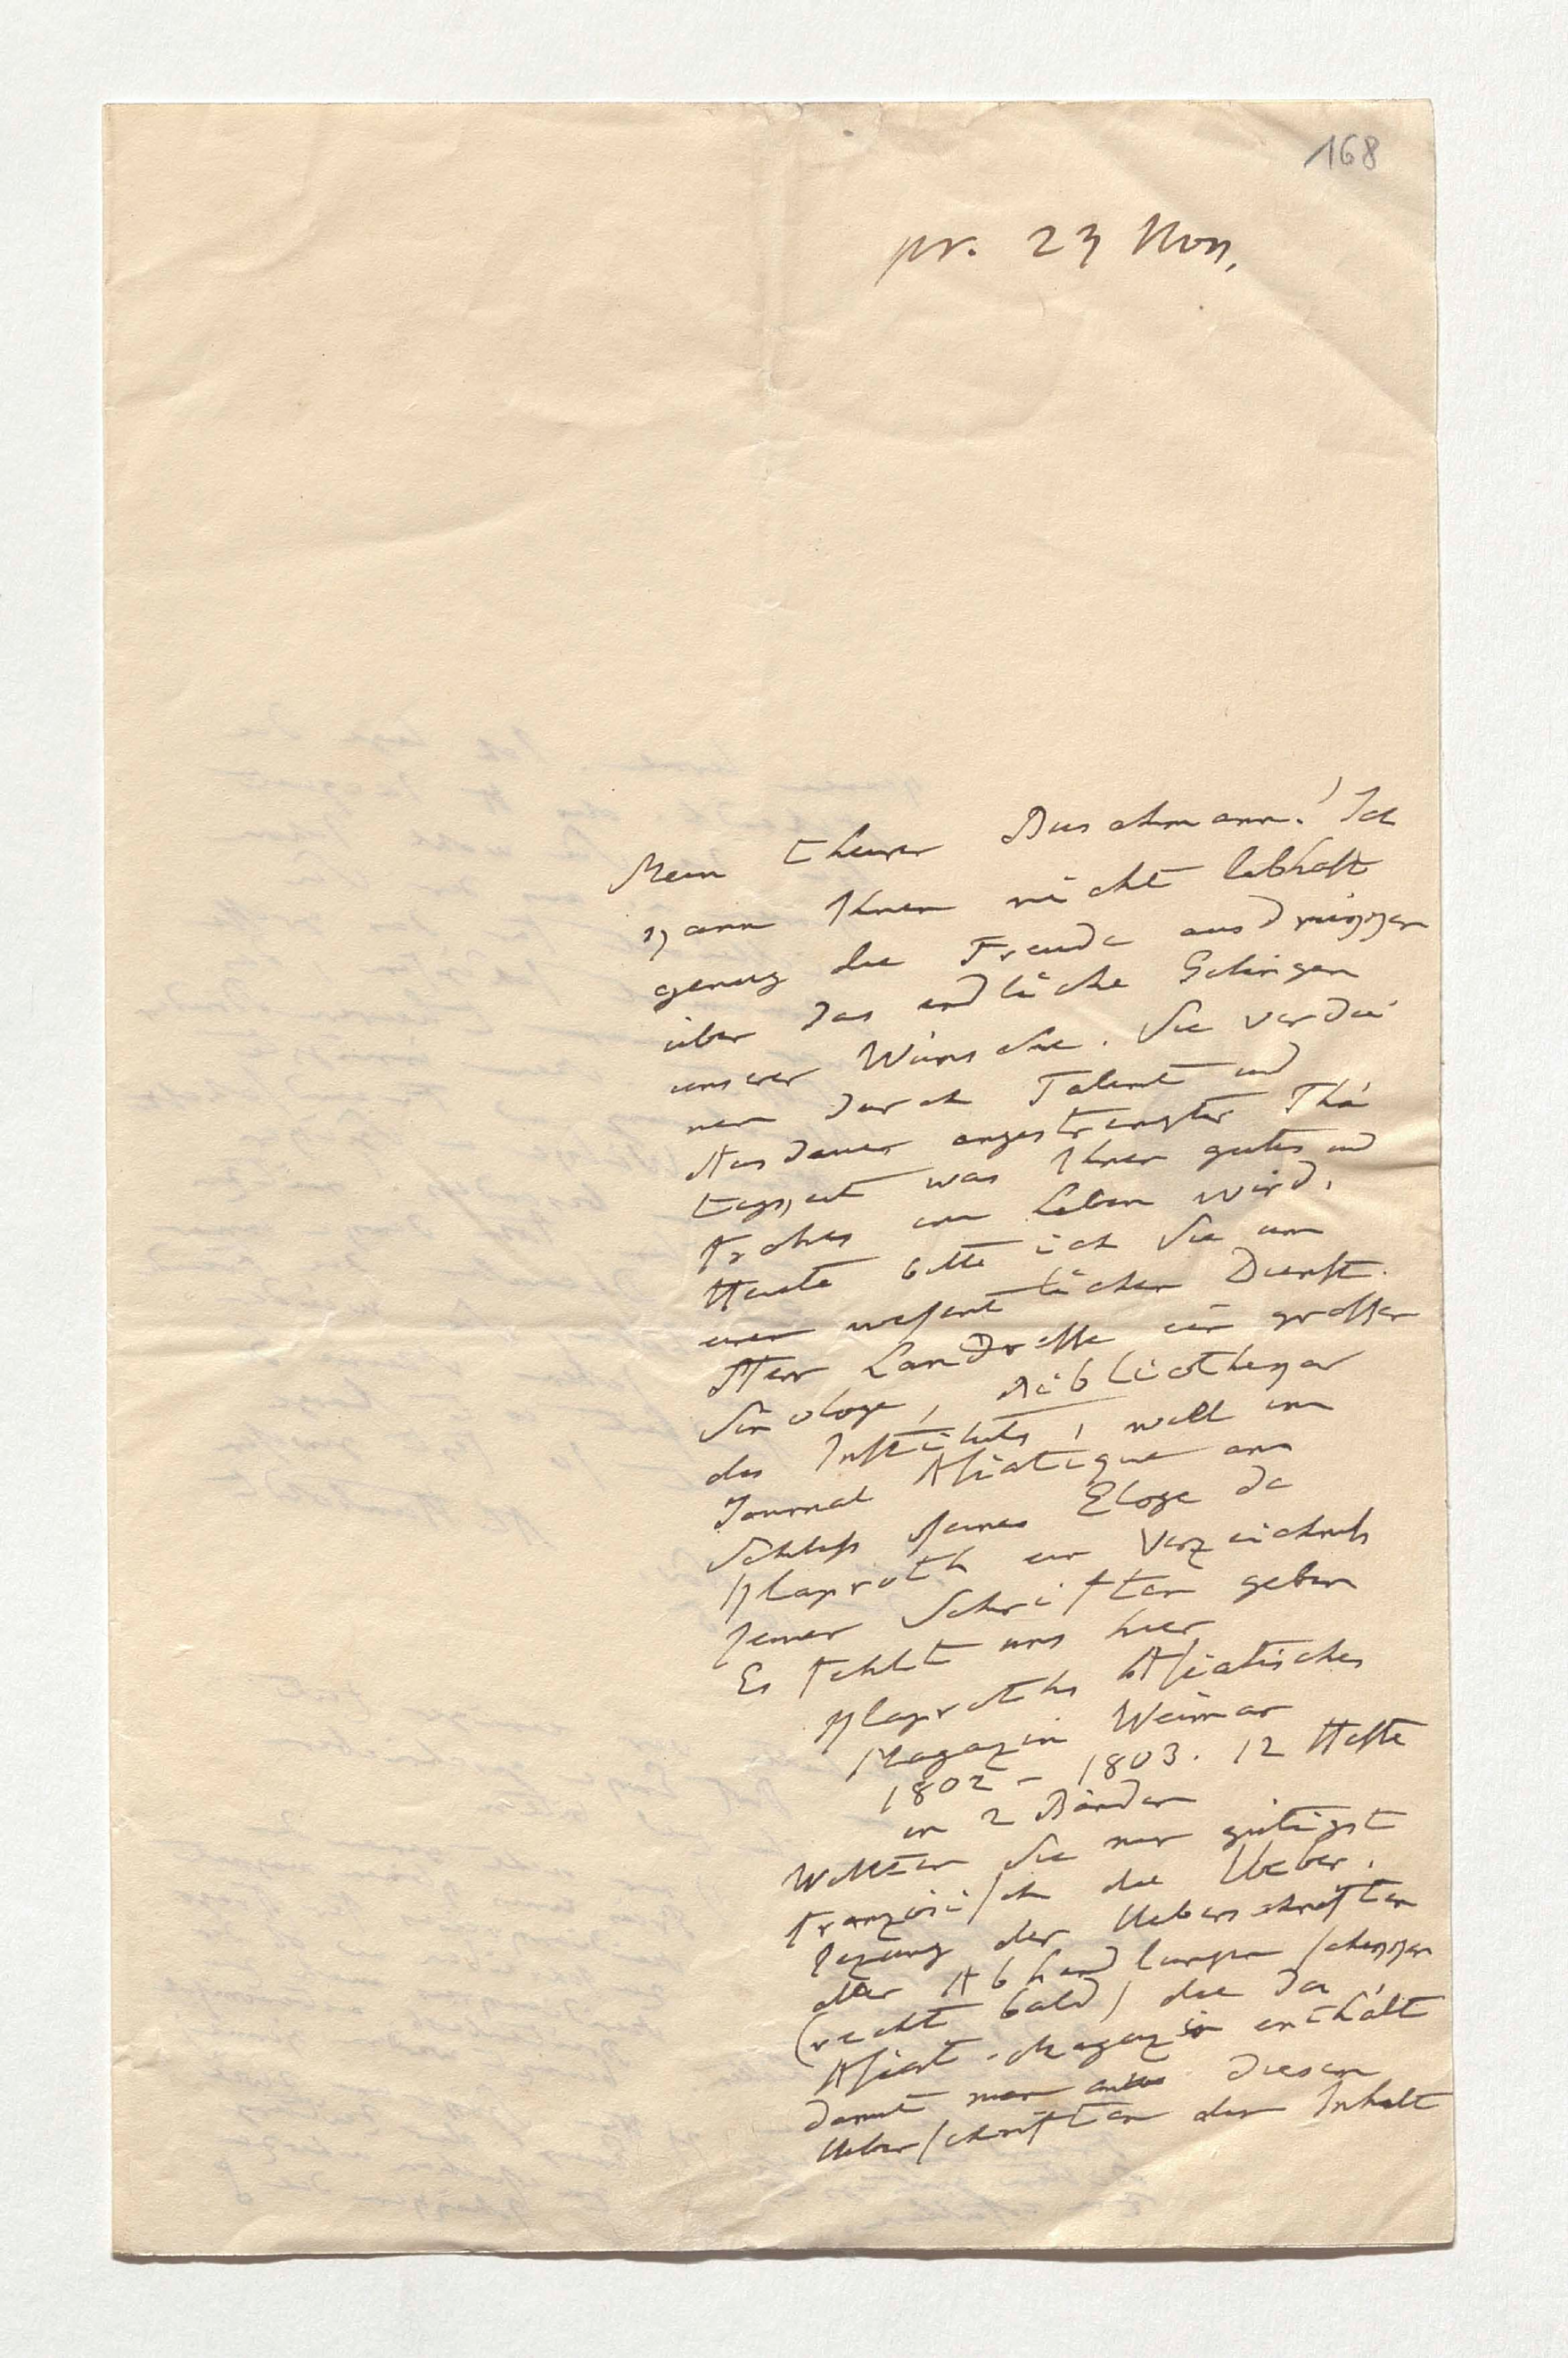 168
pr. 23 Nov.
Mein theurer Buschmann! Ich
kann Ihnen nicht lebhaft
genug die Freude ausdrükken
über das endliche Gelingen
unserer Wünsche. Sie verdie
nen durch Talent und
Ausdauer angestrengter Thä
tigkeit was Ihnen gutes und
frohes im Leben wird.
Heute bitte ich Sie um
einen wesentlichen Dienst.
Herr Landresse ein grosser
Sinologe, Bibliothekar
des Instituts, will im
Journal Asiatique am
Schluß seines Eloge de
Klaproth ein Verzeichniß
seiner Schriften geben
Es fehlt uns hier
Klaproths Asiatisches
Magazin Weimar
1802 – 1803. 12 Hefte
in 2 Bänden
Wollten Sie mir gütigst
französisch die Ueber-
sezung der Ueberschriften
aller Abhandlungen schikken
(recht bald) die das
Asiat. Magazin enthält
damit man aus diesen
Ueberschriften den Inhalt